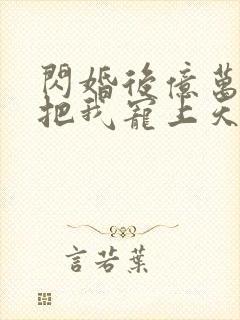 閃婚後億萬
把我寵上天
言若葉